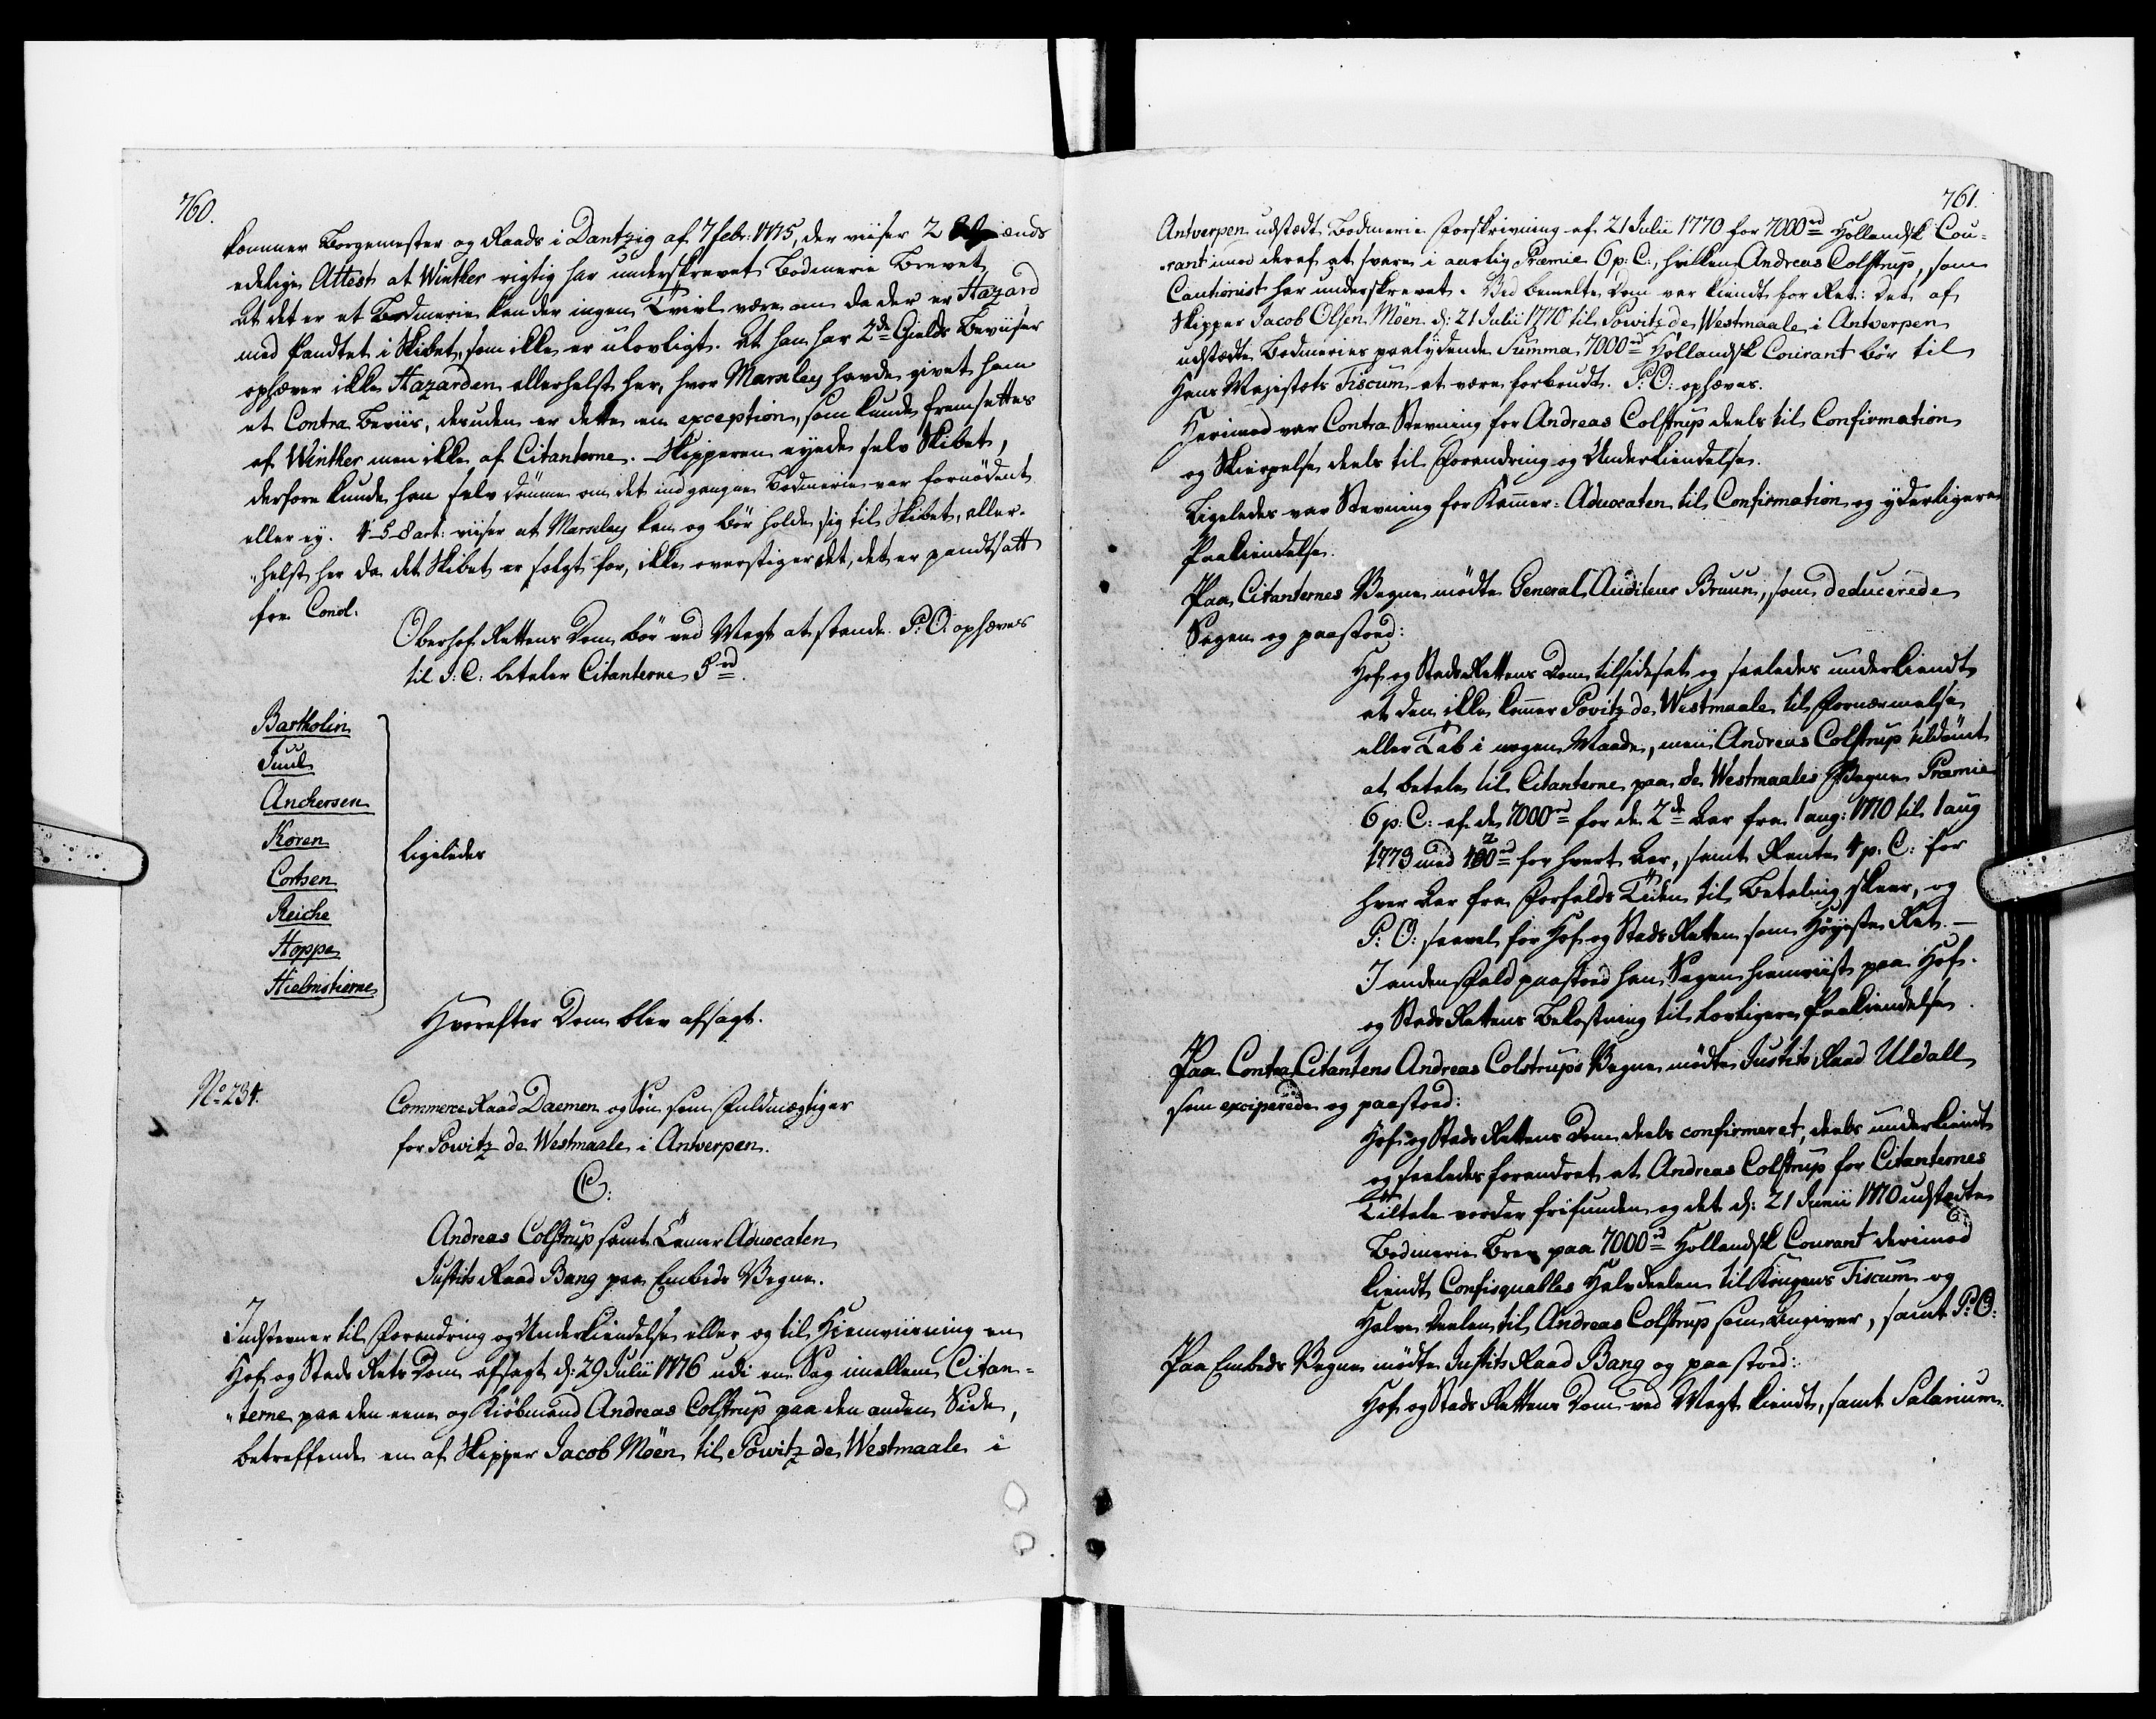 760.
kommer Borgemester og Raads i Dantzig af 7 febr: 1775, der viiser 2 Mænds
edelige Attest at Winther rigtig har underskrevet Bodmerie Brevet,
At det er et Bodmerie kan der ingen Tvivl være om da der er Hazard
med Pandtet i Skibet, som ikke er ulovligt. At han har 2de Gields Beviiser
ophæver ikke Hazarden allerhelst her, hvor Marseley havde givet ham
et Contra Beviis, desuden er dette en exception, som kunde fremsettes
af Winther men ikke af Citanterne. Skipperen eyede selv Skibet,
derfore kunde han selv dömme om det indgangne Bodmerie var fornödent
eller ey. 4-5-8 art: viser at Marseley kan og bör holde sig til Skibet, aller-
"helst her da det Skibet er solgt for, ikke overstiger det, det er pandtsatt
for. Concl.
Oberhof Rettens Dom bör ved Magt at stande. P: O: ophæves
til J: C: betaler Citanterne 5 rd.
Bartholin
Juul
Anchersen
Koren
Cortsen
Reiche
Hoppe
Hielmstierne
ligeledes
Hvorefter Dom blev afsagt.
No. 234.
Commerce Raad Daemen og Sön som Fuldmægtiger
for Powitz de Westmaale i Antwerpen.
C:
Andreas Colstrup samt Camer Advocaten
Justits Raad Bang paa Embeds Vegne.
Indstevner til Forandring og Underkiendelse eller og til Hiemviisning en
Hof og Stads Rets Dom afsagt d: 29 Julii 1776 udi en Sag imellem Citan-
"terne paa den eene og Kiöbmand Andreas Colstrup paa den anden Side,
betreffende en af Skipper Jacob Möen til Powitz de Westmaale i
761.
Antverpen udstædt Bodmerie Forskrivning af 21 Julii 1770 for 7000 rd Hollandsk Cou-
"rant imod deraf at svare i aarlig Præmie 6 p: C:, hvilken Andreas Colstrup, som
Cautionist har underskrevet. Ved bemelte Dom var kiendt for Ret: Det af
Skipper Jacob Olsen Möen d: 21 Julii 1770 til Powitz de Westmaale i Antverpen
udstædte Bodmeries paalydende Summa 7000 rd Hollandsk Courant bör til
Hans Majestæts Fiscum at være forbrudt. P: O: ophæves.
Herimod var Contra Stevning for Andreas Colstrup deels til Confirmation
og Skierpelse deels til Forandring og Underkiendelse.
Ligeledes var Stevning for Kamer-Advocaten til Confirmation og yderligere
Paakiendelse.
Paa Citanternes Vegne mödte General Auditeur Bruun, som deducerede
Sagen og paastoed:
Hof og Stads Rettens Dom tilsidesat og saaledes underkiendt
at den ikke kommer Powitz de Westmaale til Fornærmelse
eller Tab i nogen Maade, men Andreas Colstrup tildömt
at betale til Citanterne paa de Westmaales Vegne Præmie
6 p: C: af de 7000 rd for de 2de Aar fra 1 aug: 1770 til 1 aug
1773 med 420 rd for hvert Aar, samt Rente 4 p: C: for
hver Aar fra Forfalds Tiden til Betaling skeer, og
P: O: saavel for Hof og Stads Retten som Höyeste Ret. —
I anden Fald paastoed han Sagen hiemviist paa Hof-
og Stads Rettens Bekostning til lovligere Paakiendelse.
Paa Contra Citantens Andreas Colstrups Vegne mödte Justits Raad Uldall
som exciperede og paastoed:
Hof og Stads Rettens Dom deels confirmeret, deels underkiendt
og saaledes forandret at Andreas Colstrup for Citanternes
Tiltale vorder frifunden og det d: 21 Junii 1770 udstædte
Bodmerie Brev paa 7000 rd Hollandsk Courant derimod
kiendt Confisquabelt Halvdeelen til Kongens Fiscum og
Halve Deelen til Andreas Colstrup som Angiver, samt P: O:
Paa Embeds Vegne mödte Justits Raad Bang og paastoed:
Hof og Stads Rettens Dom ved Magt kiendt, samt Salarium.